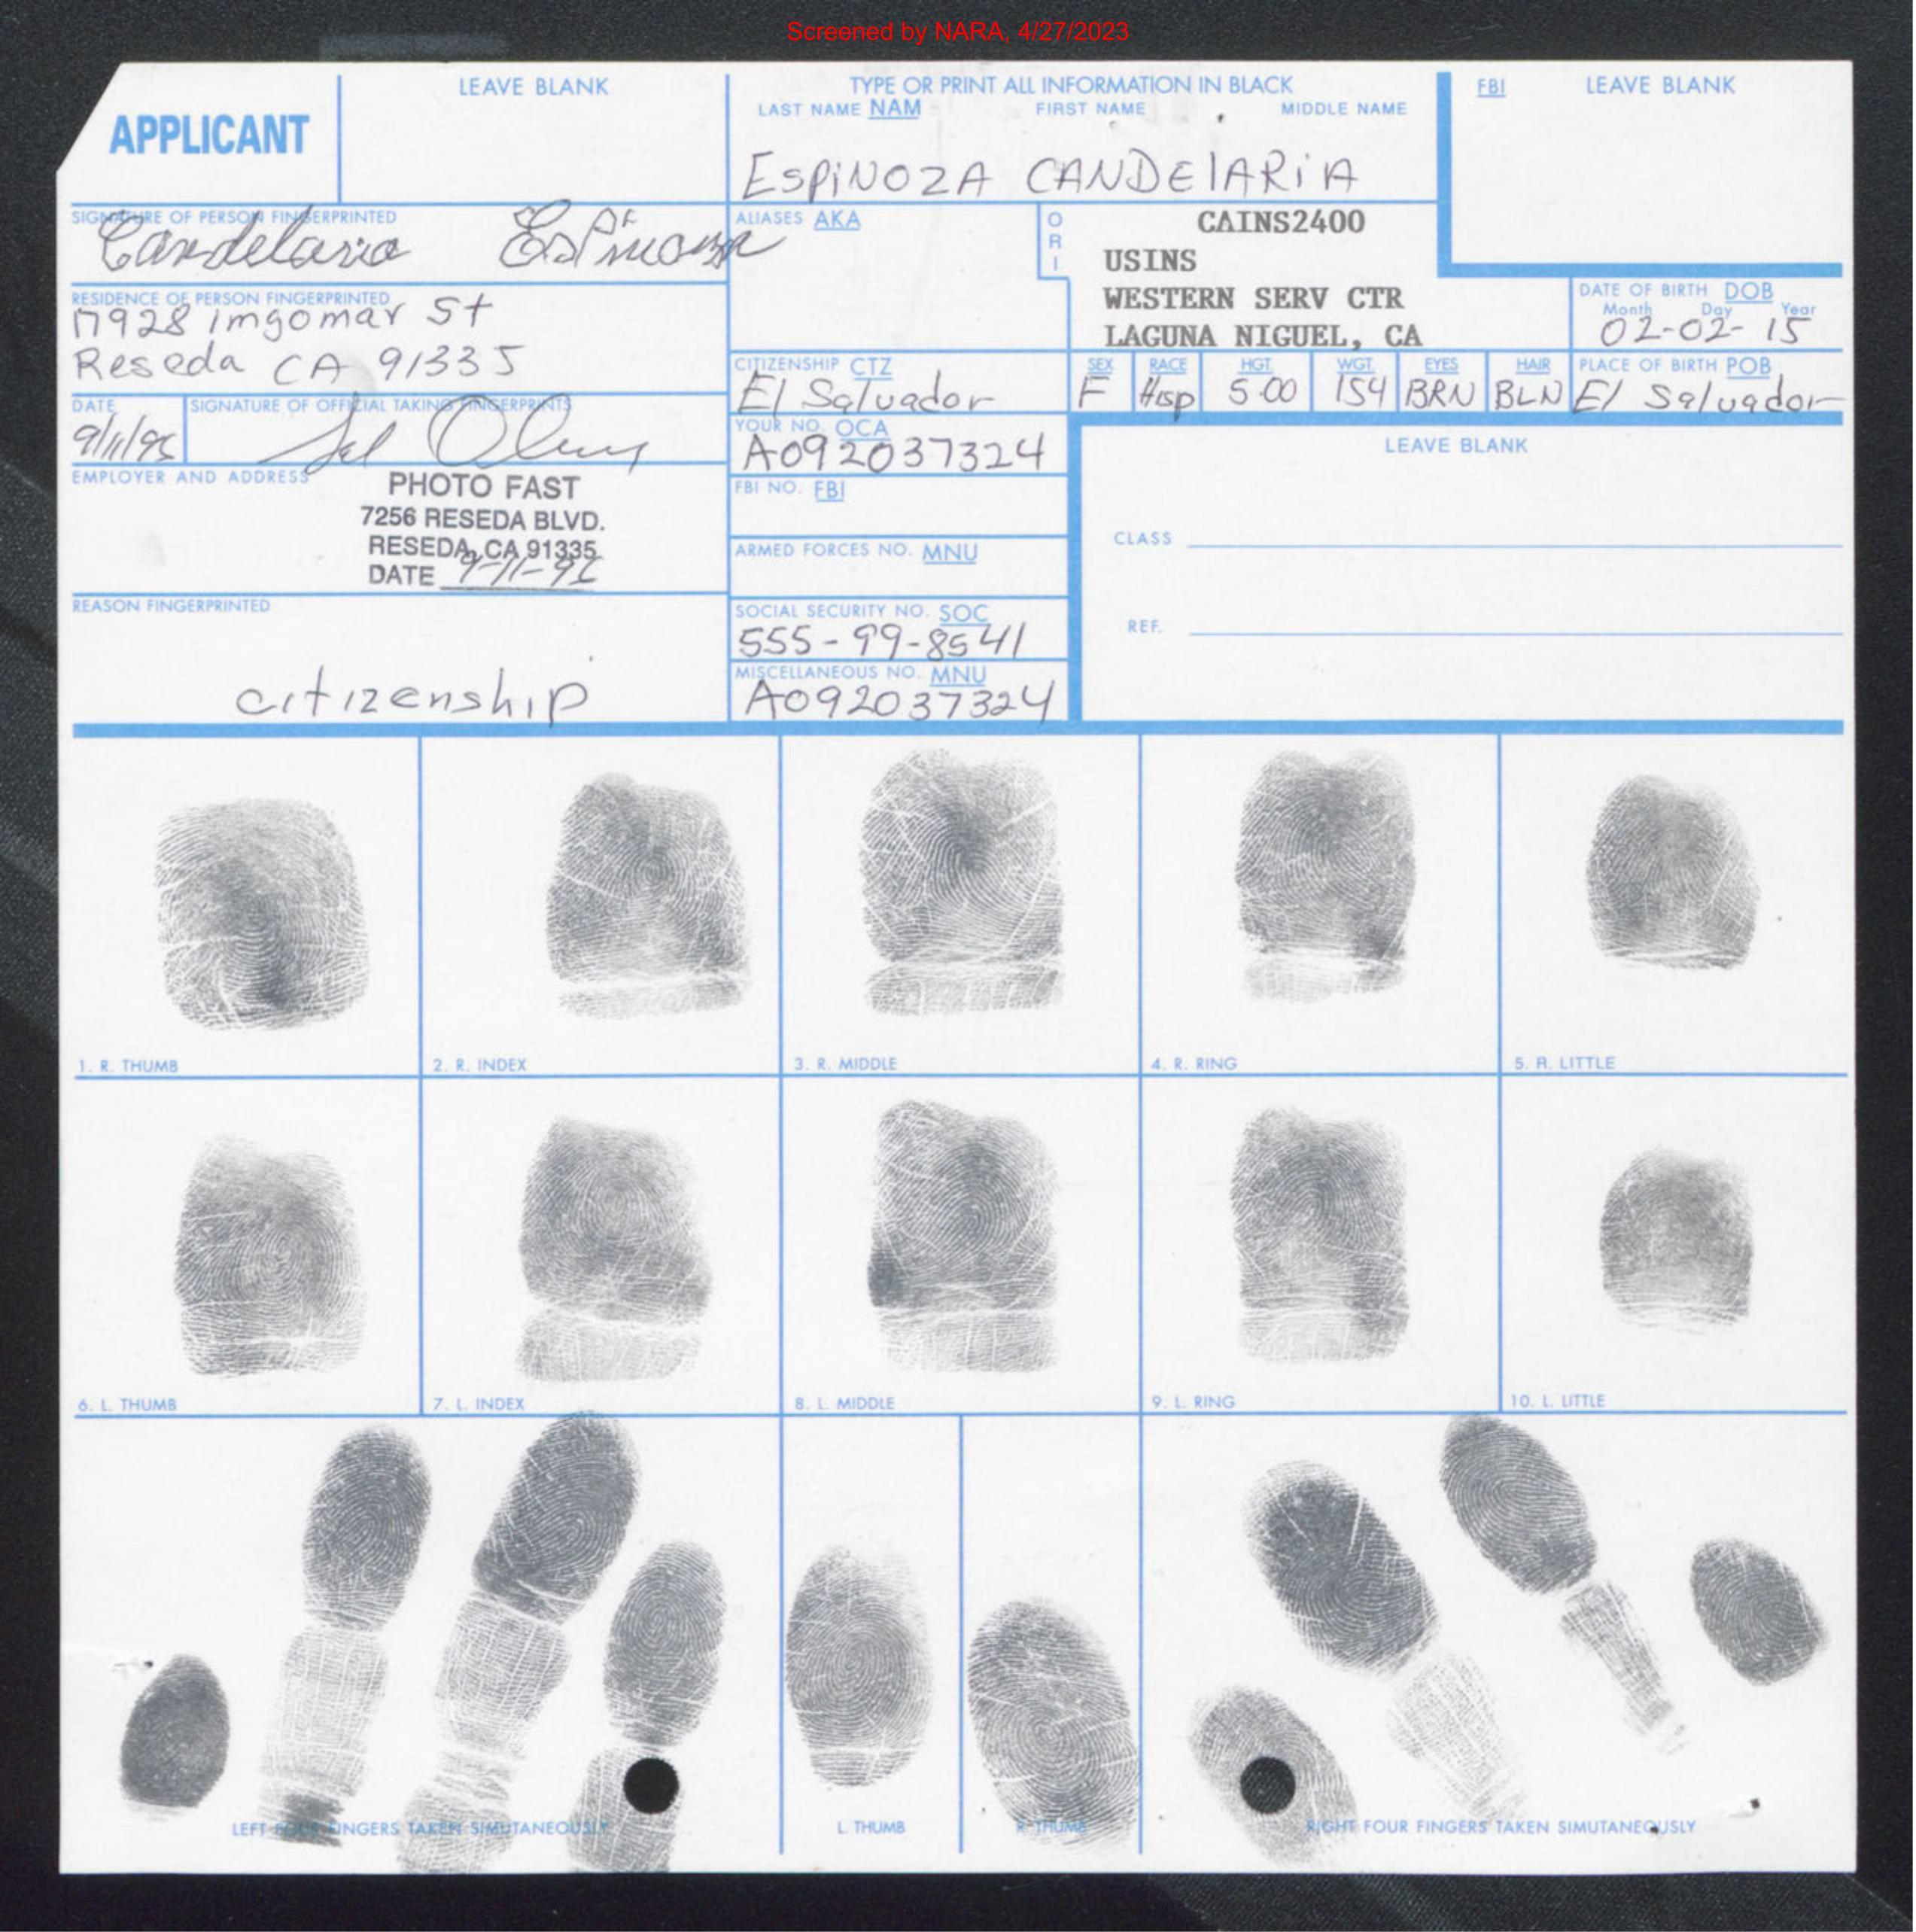 Screened by NARA, 4/27/2023
APPLICANT
LEAVE BLANK
TYPE OR PRINT ALL INFORMATION IN BLACK
LAST NAME NAM FIRST NAME MIDDLE NAME
ESPINOZA CANDELARIA
FBI LEAVE BLANK
SIGNATURE OF PERSON FINGERPRINTED
Candelaria Espinoza
ALIASES AKA
ORI
CAINS2400
USINS
WESTERN SERV CTR
LAGUNA NIGUEL, CA
RESIDENCE OF PERSON FINGERPRINTED
17928 imgomar St
Reseda CA 91335
DATE OF BIRTH DOB
Month Day Year
02-02-15
CITIZENSHIP CTZ
El Salvador
SEX RACE HGT. WGT. EYES HAIR PLACE OF BIRTH POB
F Hisp 5.00 154 BRN BLN El Salvador
DATE SIGNATURE OF OFFICIAL TAKING FINGERPRINTS
YOUR NO. OCA
A092037324
LEAVE BLANK
EMPLOYER AND ADDRESS
PHOTO FAST
7256 RESEDA BLVD.
RESEDA, CA 91335
DATE
FBI NO. FBI
ARMED FORCES NO. MNU
CLASS
REASON FINGERPRINTED
citizenship
SOCIAL SECURITY NO. SOC
555-99-8541
REF.
MISCELLANEOUS NO. MNU
A092037324
1. R. THUMB
2. R. INDEX
3. R. MIDDLE
4. R. RING
5. R. LITTLE
6. L. THUMB
7. L. INDEX
8. L. MIDDLE
9. L. RING
10. L. LITTLE
LEFT FOUR FINGERS TAKEN SIMUTANEOUSLY
L. THUMB
R. THUMB
RIGHT FOUR FINGERS TAKEN SIMUTANEOUSLY